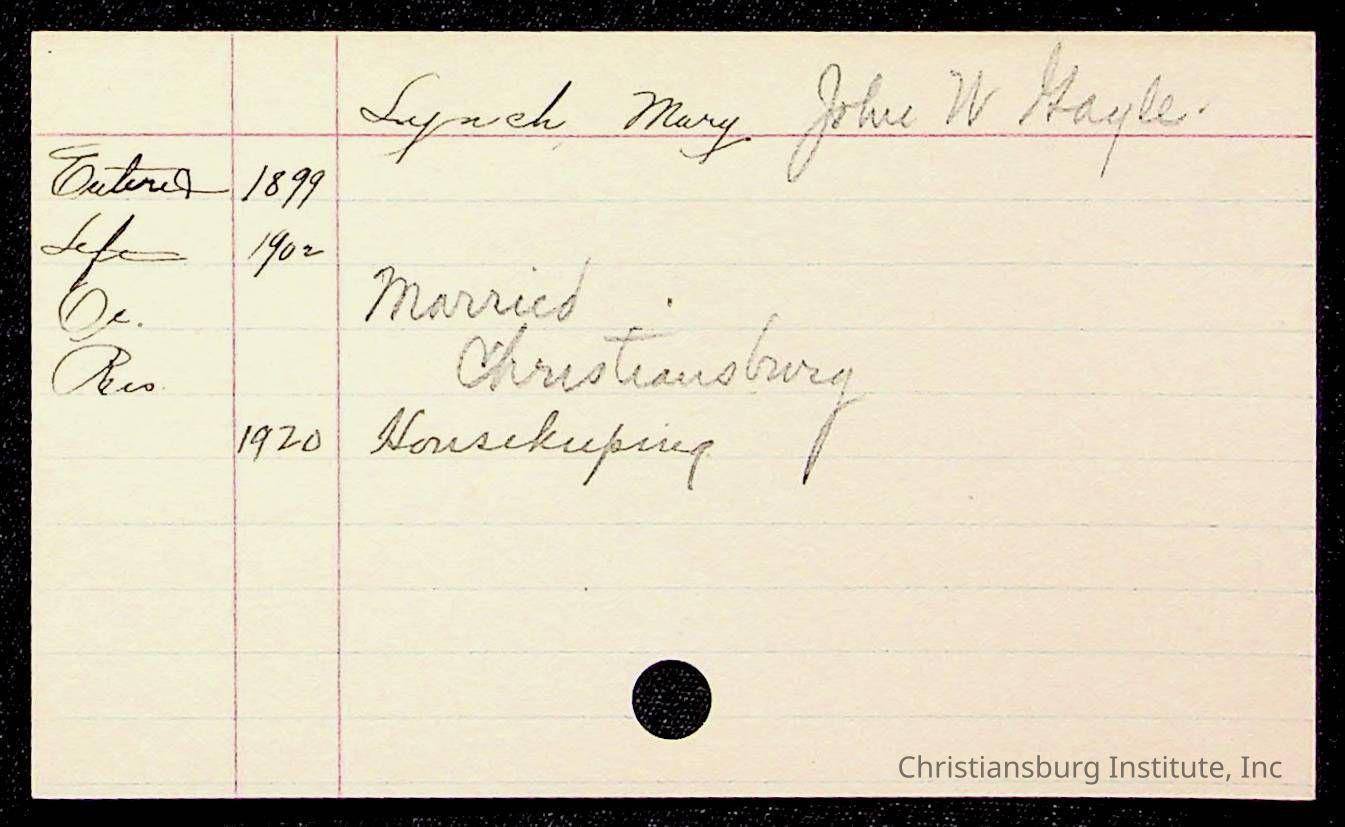 Lynch, Mary John W Gayle.
Entered 1899
Left 1902
Oc. Married
Res. Christiansburg
1920 Housekeeping
Christiansburg Institute, Inc